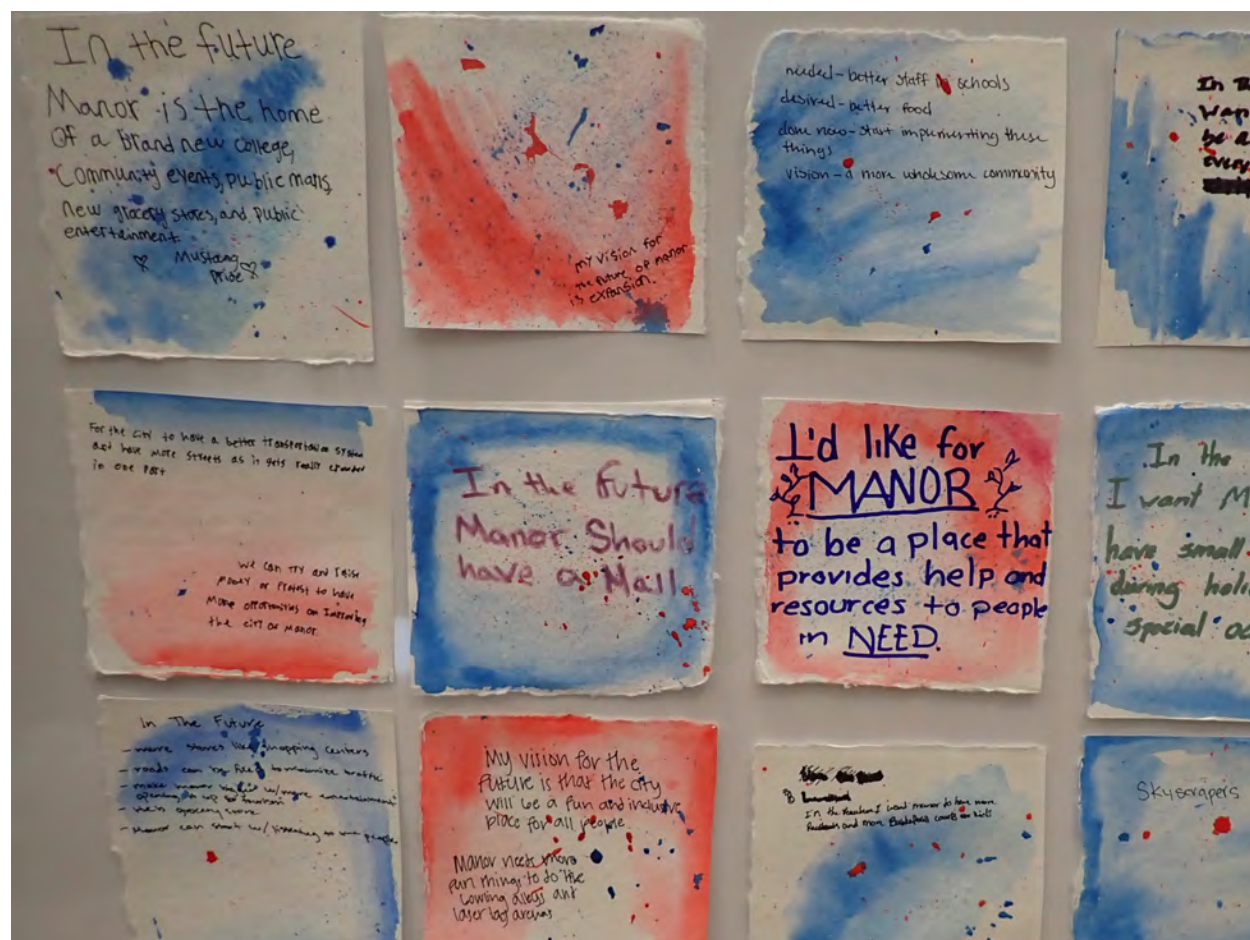 In the future
Manor is the home
Of a Brand new college,
Community events, public maris,
new grocery stores, and public
entertainment.
Mustang
Pride
my vision for
the future of manor
is expansion.
needed - better staff in schools
desired - better food
done now - start implementing these
things
vision - a more wholesome community
In
Wan
be a
every
For the city to have a better transportation system
and have more streets as it gets really crowded
in one part
we can try and raise
money or protest to have
more opportunities on Improving
the city of Manor.
In the future
Manor Should
have a Mall.
I'd like for
MANOR
to be a place that
provides help and
resources to people
in NEED.
In the
I want M
have small
during holi
special oc
In The Future
- more stores like shopping centers
- roads can be to minimize traffic
- make manor w/ more entertainment
opening up to tourism
- grocery store
- Manor can start w/ listening to people
My vision for the
future is that the city
will be a fun and inclusive
place for all people.
Manor needs more
fun things to do like
bowling alleys and
laser tag arenas
In the I want manor to have more
and more Basketball courts
Skyscrapers